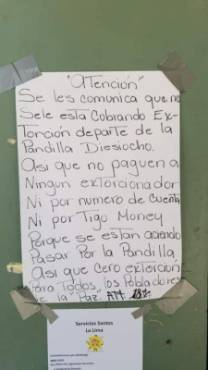 "ATención"
Se les comunica que no
Sele esta Cobrando Ex-
Torción departe de la
Pandilla Diesiocho.
Asi que no paguen a
Ningun exTorcionador
Ni por numero de Cuenta
Ni por Tigo Money
Porque se estan aciendo
Pasar Por la Pandilla
Asi que Cero exTorcion
Para Todos los Pobladores
de la "Paz" ATT. 18%
Servicios Santos
La Lima